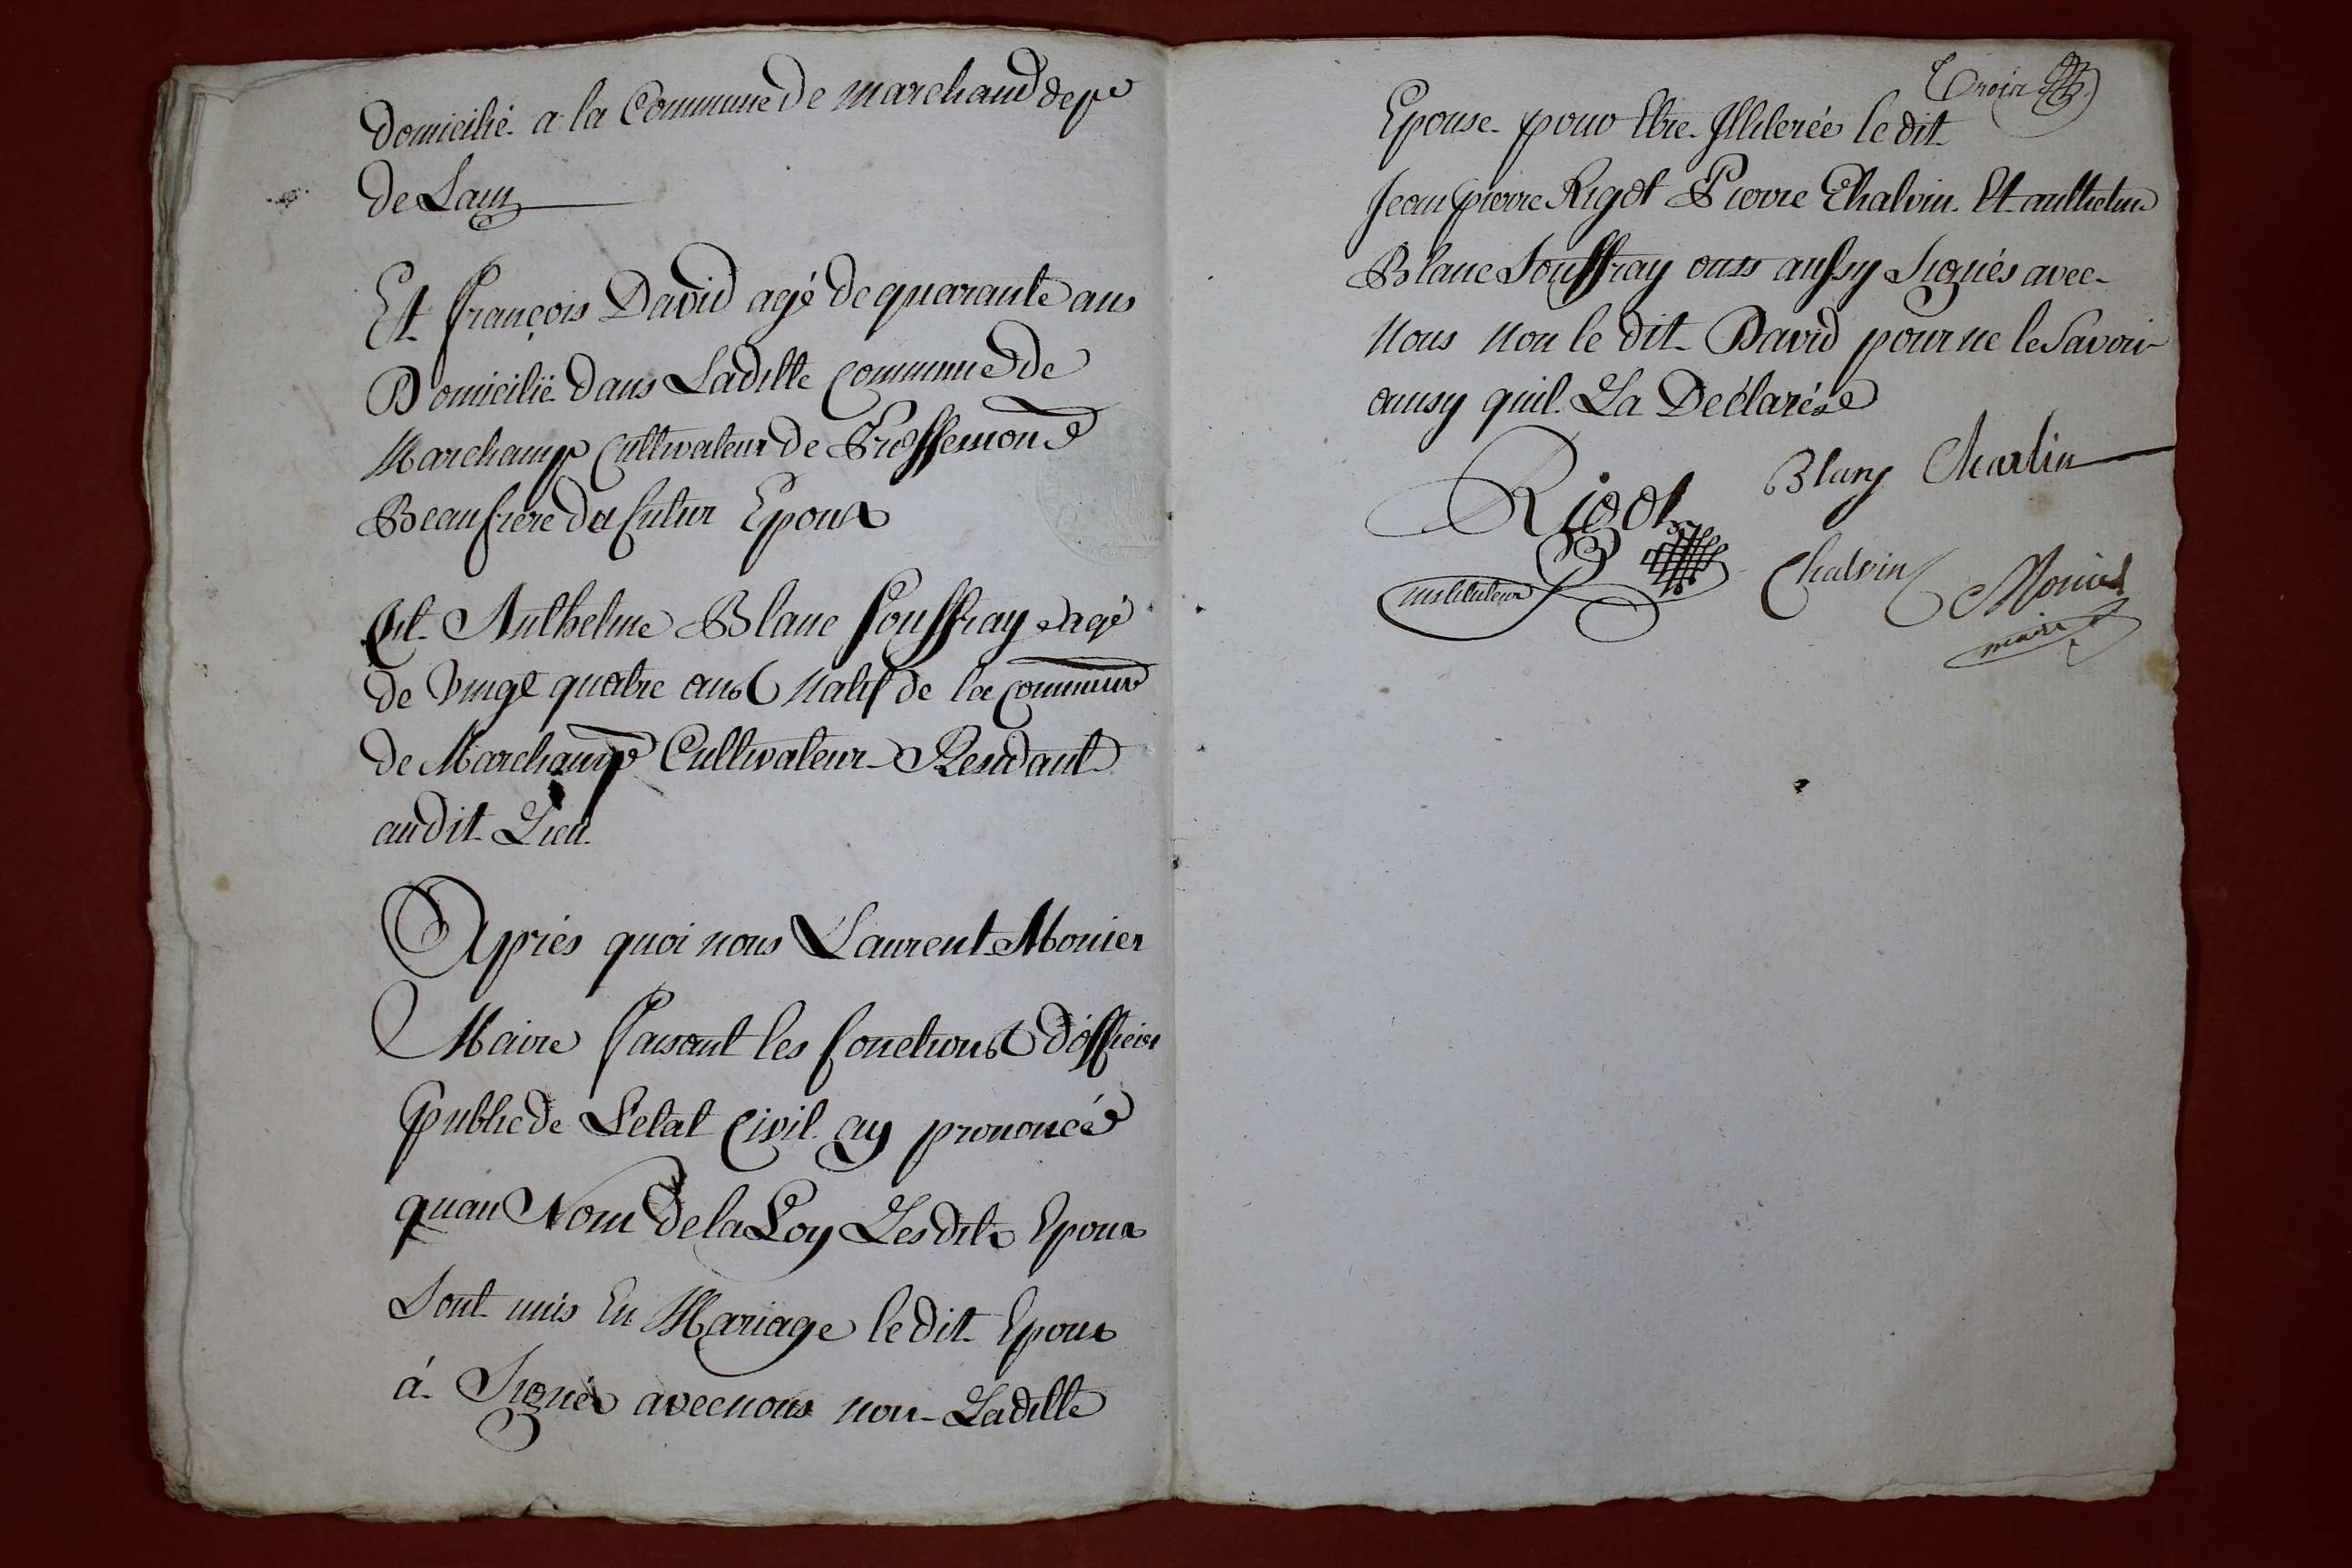 domicilié a la Commune de marchand depe
de Lain
Et françois David agé de quarante ans
Domicilié dans Laditte commune de
Marchamp Cultivateur de Proffession
Beaufrere du futur Epoux
Et Anthelme Blanc Souffray agé
de vingt quatre ans Natif de la commune
de Marchamp Cultivateur Residant
audit Lieu
Apriés quoi nous Laurent Monier
Maire faisant les fonctions d'officier
public de Letat Civil ay prononcée
quau Nom de la Loy Les dits Epoux
sont unis En Mariage le dit Epoux
á Signés avec nous non Laditte
Trois
Epouse pour Etre Illiterée le dit
Jean pierre Rigot Pierre Chalvin Et anthelme
Blanc Souffray onts aussy Signés avec
Nous Non le dit David pour ne le Savoir
ainsy quil La Déclarée
Rigot Blanc Charlin
instituteur Chalvin Monier
maire